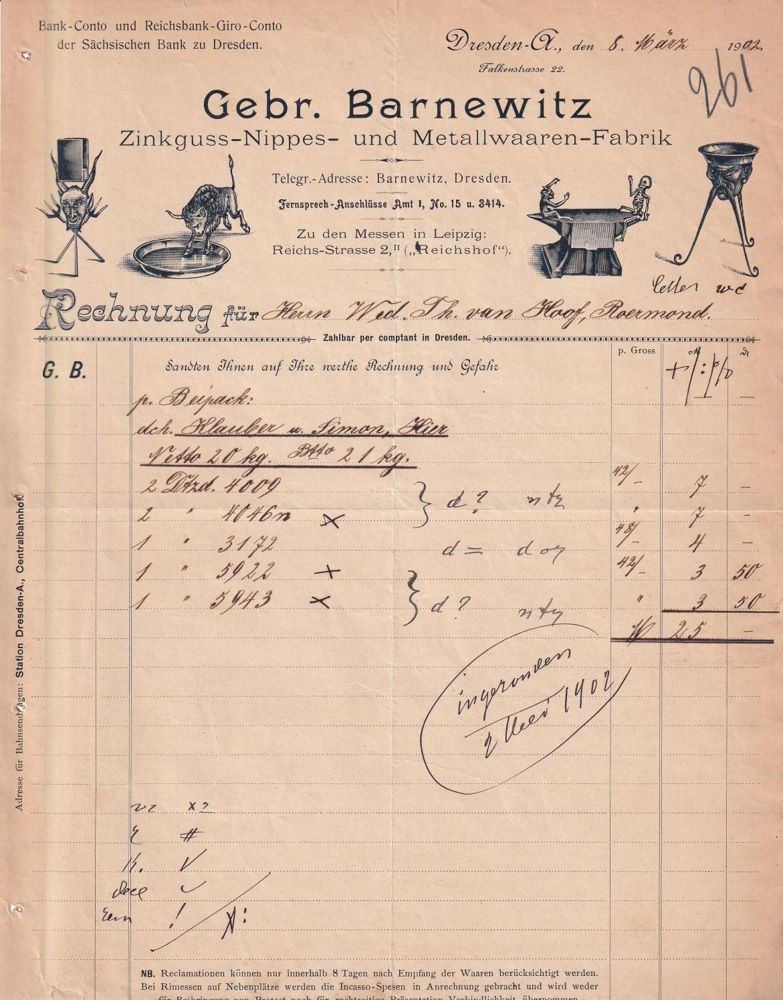 Bank-Conto und Reichsbank-Giro-Conto
der Sächsischen Bank zu Dresden.
Dresden-A., den 8. März 1902.
Falkenstrasse 22.
261
Gebr. Barnewitz
Zinkguss-Nippes- und Metallwaaren-Fabrik
Telegr.-Adresse: Barnewitz, Dresden.
Fernsprech-Anschlüsse Amt I, No. 15 u. 3414.
Zu den Messen in Leipzig:
Reichs-Strasse 2,II („Reichshof“).
Rechnung für Herrn Wed. Th. van Hoof, Roermond.
Zahlbar per comptant in Dresden.
G. B. Sandten Ihnen auf Ihre werthe Rechnung und Gefahr p. Gross
p. Beipack:
dch. Klauber u. Simon, Hier
Netto 20 kg. Btto 21 kg.
2 Dtzd. 4009 42/- 7 —
2 " 4046n x " 7 —
1 " 3172 48/- 4 —
1 " 5922 x 42/- 3 50
1 " 5943 x " 3 50
M 25 —
d?
d =
d?
ingezonden
2 Mei 1902
Adresse für Bahnsendungen: Station Dresden-A., Centralbahnhof.
NB. Reclamationen können nur innerhalb 8 Tagen nach Empfang der Waaren berücksichtigt werden.
Bei Rimessen auf Nebenplätze werden die Incasso-Spesen in Anrechnung gebracht und wird weder
für Beibringung von Protest noch für rechtzeitige Präsentation Verbindlichkeit übernommen.